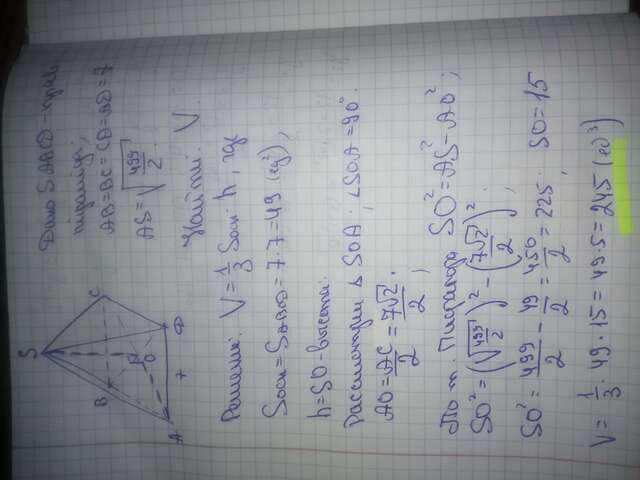 S
B
C
A
7
D
O
Дано SABCD – прав.
пирамида,
AB=BC=CD=AD=7
AS=√(499/2)
Найти: V.
Решение: V=1/3 Sосн · h, где
Sосн=SABCD=7·7=49 (ед²),
h=SO – высота.
Рассмотрим Δ SOA: ∠SOA=90°.
AO=AC/2=7√2/2;
По т. Пифагора SO²=AS²-AO²;
SO²=(√(499/2))²-(7√2/2)²;
SO²=499/2-49/2=450/2=225; SO=15
V=1/3·49·15=49·5=245 (ед)³